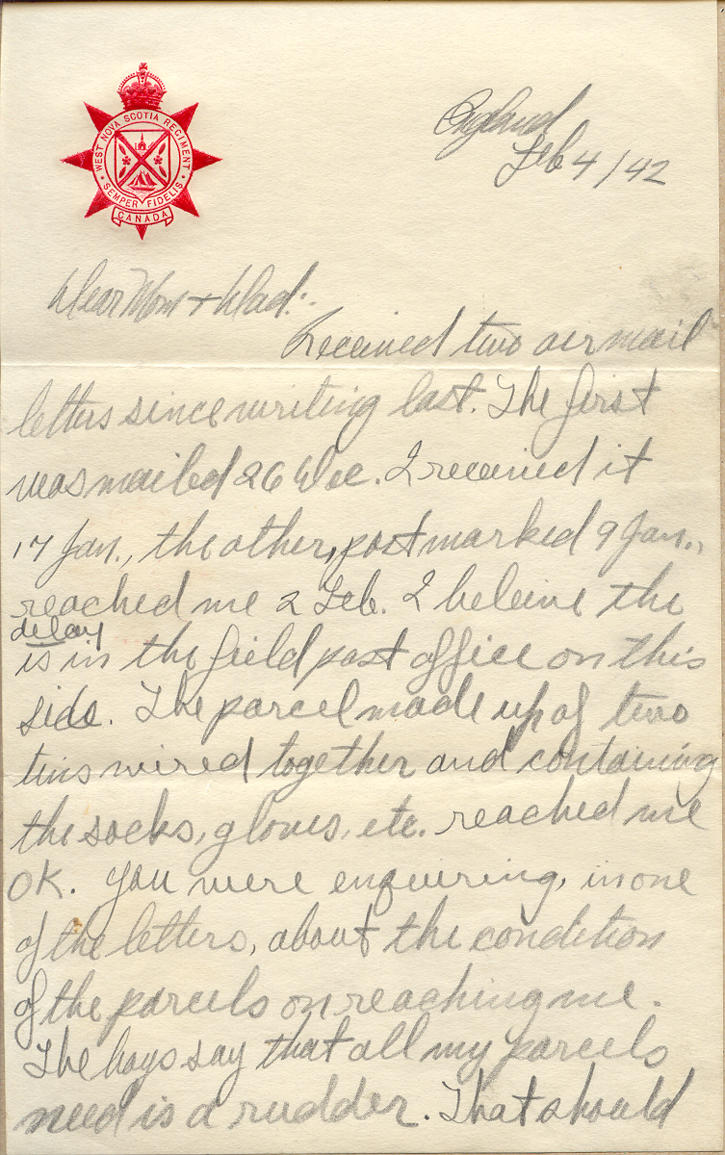 WEST NOVA SCOTIA REGIMENT
SEMPER FIDELIS
CANADA
England
Feb 4/42
Dear Mom + Dad:-
Received two air mail
letters since writing last. The first
was mailed 26 Dec. I received it
17 Jan., the other, postmarked 9 Jan.,
reached me 2 Feb. I beleive the
delay
is in the field post office on this
side. The parcel made up of two
tins wired together and containing
the socks, gloves, etc. reached me
OK. You were enquiering, in one
of the letters, about the condition
of the parcels on reaching me.
The boys say that all my parcels
need is a rudder. That should